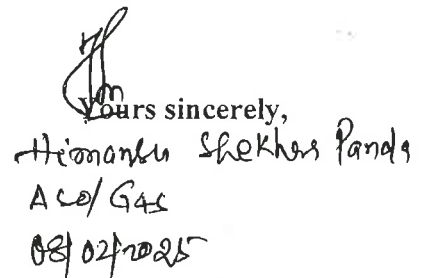 Yours sincerely,
Himansu Shekhar Panda
ASO/GAS
08/02/2025